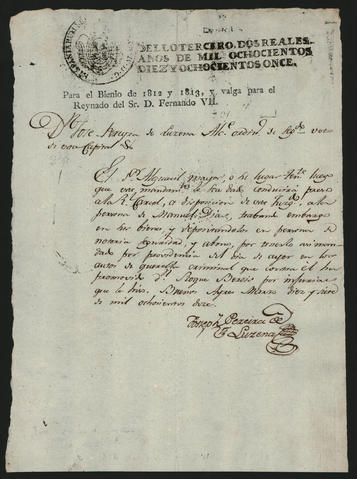 SELLO TERCERO. DOS REALES.
AÑOS DE MIL OCHOCIENTOS
DIEZ Y OCHOCIENTOS ONCE.
Para el Bienio de 1812 y 1813, y valga para el
Reynado del Sr. D. Fernando VII.
Dn. Jose Pereyra de Luzena Alc.e ordin.o de seg.do voto
de esta Capital &
El Alguacil mayor, o su lugar luego
que este le sea dado conducirá preso
a la Rl. Carcel, a disposicion de este Juzg.do, a la
persona de Manuel Diaz, trabando embargo
en sus bienes y depositandolos en persona de
notoria y abono, por tenerlo asi man-
dado por providencia del dia de ayer en los
autos de querella criminal que contra el ha
promovido Dn. Roque
que le hizo. Buenos Ayres Marzo diez y
de mil ochocientos doze.
Josep Pereira de
Luzena